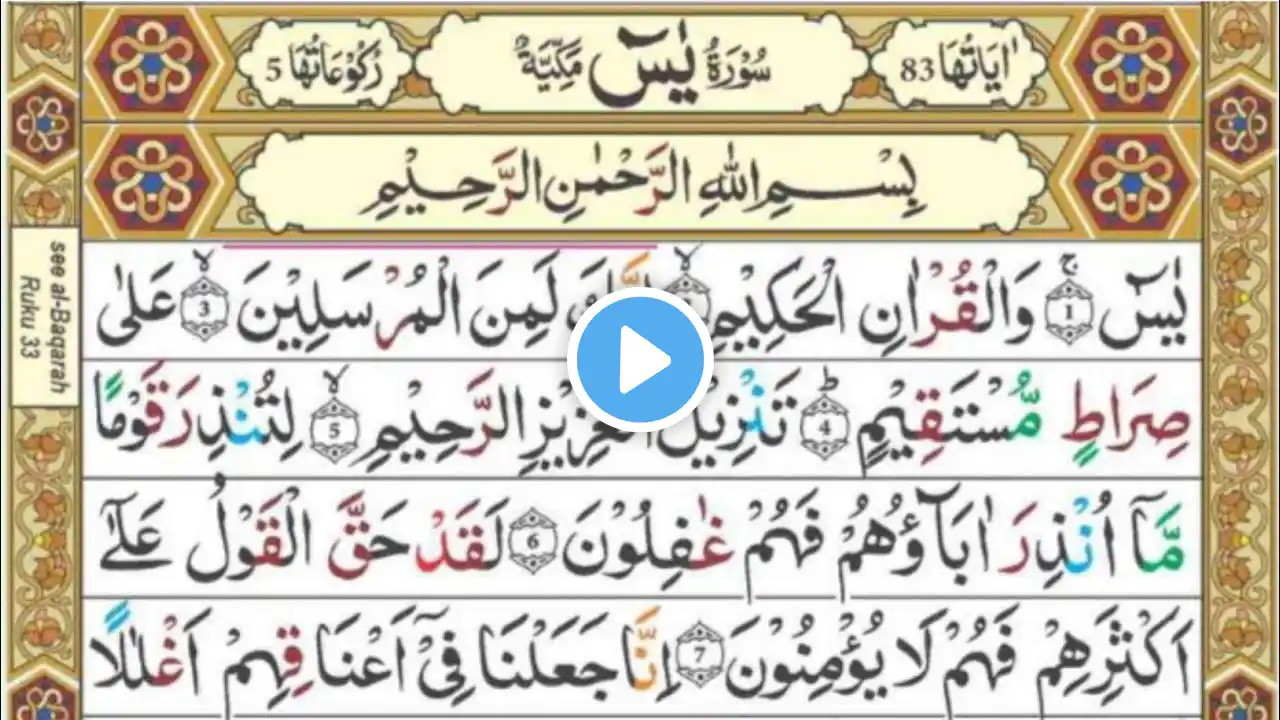 اٰيَاتُهَا 83 سُوْرَةُ يٰسٓ مَكِّيَّةٌ رُكُوْعَاتُهَا 5
بِسْمِ اللهِ الرَّحْمٰنِ الرَّحِيْمِ
يٰسٓ ۚ 1 وَالْقُرْاٰنِ الْحَكِيْمِ ۙ لَمِنَ الْمُرْسَلِيْنَ ۙ 3 عَلٰى
صِرَاطٍ مُّسْتَقِيْمٍ ؕ 4 تَنْزِيْلَ الْعَزِيْزِ الرَّحِيْمِ ۙ 5 لِتُنْذِرَ قَوْمًا
مَّآ اُنْذِرَ اٰبَآؤُهُمْ فَهُمْ غٰفِلُوْنَ 6 لَقَدْ حَقَّ الْقَوْلُ عَلٰٓى
اَكْثَرِهِمْ فَهُمْ لَا يُؤْمِنُوْنَ 7 اِنَّا جَعَلْنَا فِيْٓ اَعْنَاقِهِمْ اَغْلٰلًا
see al-Baqarah
Ruku 33